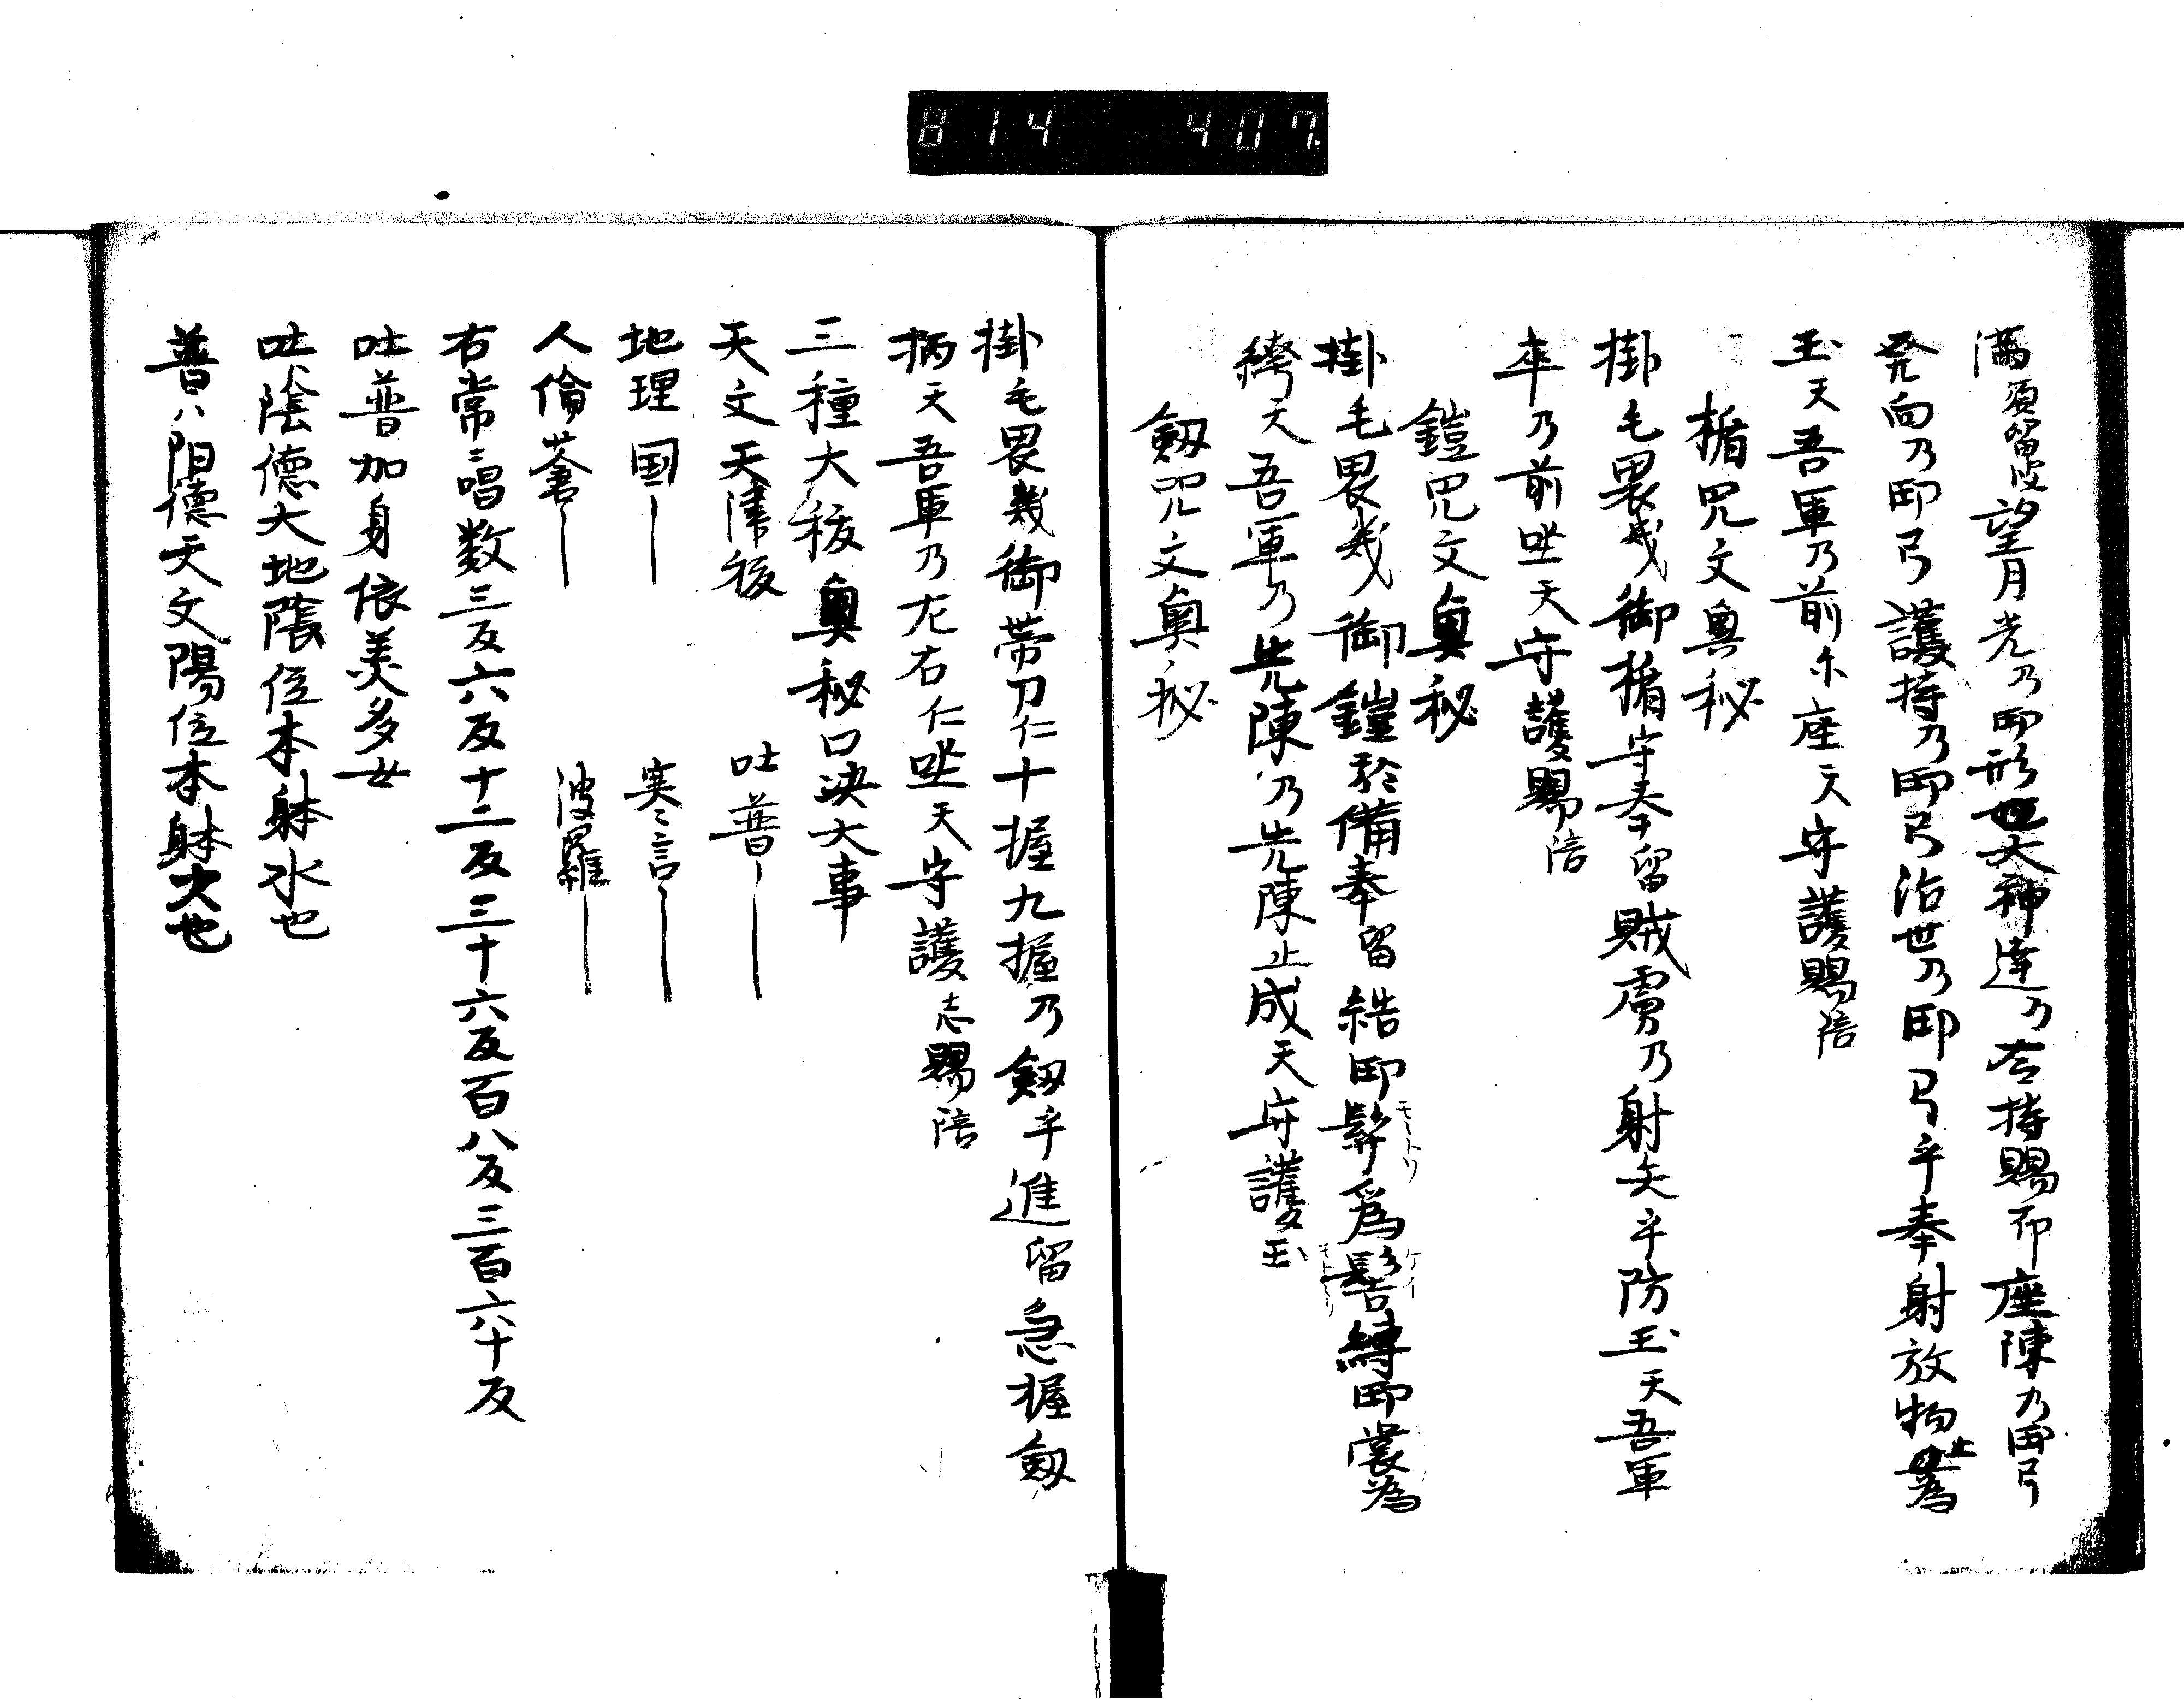 814 407
満須留皮望月光乃御形也大神達乃令持賜布座陳乃御弓
発向乃御弓護持乃御弓治世乃御弓乎奉射放物止為
玉天吾軍乃前尓座天守護賜倍
楯咒文奥秘
掛毛畏幾御楯守奉留賊虜乃射矢乎防玉天吾軍
卒乃前坐天守護賜倍
鎧咒文奥秘
掛毛畏幾御鎧於備奉留結御髪為髻縛御裳為
袴天吾軍乃先陳乃先陳止成天守護玉
劔咒文奥秘
掛毛畏幾御帯刀仁十握九握乃劔乎進留急握劔
柄天吾軍乃左右仁坐天守護志賜倍
三種大祓奥秘口决大事
天文天津後 吐普
地理国 寒言
人倫蒼 波羅
右常〻唱数三反六反十二反三十六反百八反三百六十反
吐普加身依美多女
吐ハ陰徳大地陰位本躰水也
普ハ陽徳天文陽位本躰火也